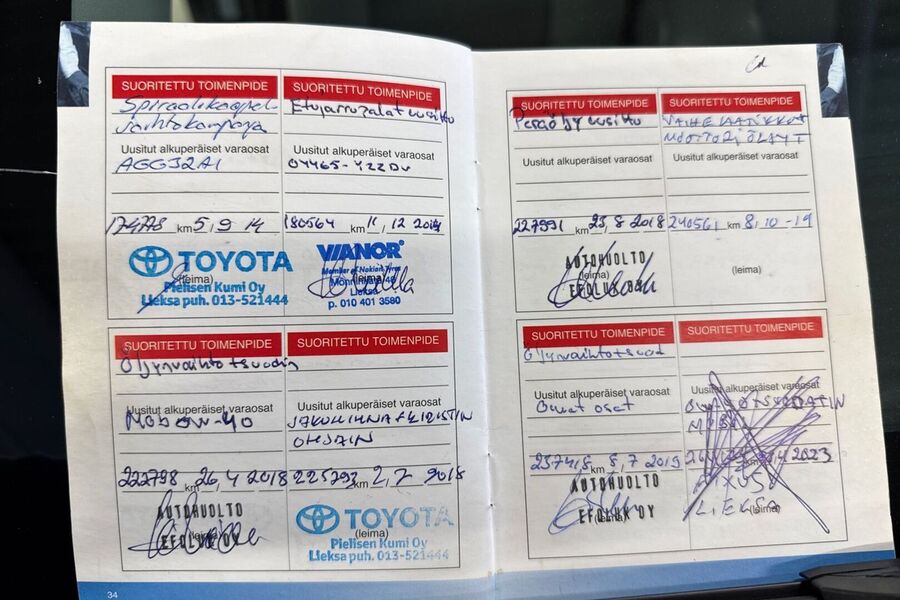 SUORITETTU TOIMENPIDE
Spiraalikaapel-
Uusitut alkuperäiset varaosat
AGG32A1
174778 km 5,9 14
TOYOTA
(leima)
Pielisen Kumi Oy
Lieksa puh. 013-521444
SUORITETTU TOIMENPIDE
Etujarrupalat uusittu
Uusitut alkuperäiset varaosat
04465-YZZDV
180564 km 11, 12 2014
VIANOR
Member of Nokian Tyres
(leima)
Lieksa
p. 010 401 3580
SUORITETTU TOIMENPIDE
Öljynvaihto + suodin
Uusitut alkuperäiset varaosat
222798 km 26,4 2018
AUTOHUOLTO
EFOLUK OY
SUORITETTU TOIMENPIDE
Uusitut alkuperäiset varaosat
JAKOHIHNA + KIRISTIN
OHJAIN
225293 km 2,7 2018
TOYOTA
(leima)
Pielisen Kumi Oy
Lieksa puh. 013-521444
34
SUORITETTU TOIMENPIDE
Peräöljy uusittu
Uusitut alkuperäiset varaosat
227991 km 23,8 2018
AUTOHUOLTO
EFOLUK OY
SUORITETTU TOIMENPIDE
VAIHELAATIKKO +
MOOTTORIÖLJYT
Uusitut alkuperäiset varaosat
240561 km 8,10 -19
(leima)
SUORITETTU TOIMENPIDE
Öljynvaihto + suod
Uusitut alkuperäiset varaosat
Omat osat
237418 km 8,7 2019
AUTOHUOLTO
(leima)
EFOLUK OY
SUORITETTU TOIMENPIDE
Uusitut alkuperäiset varaosat
2023
LIEKSA
(leima)